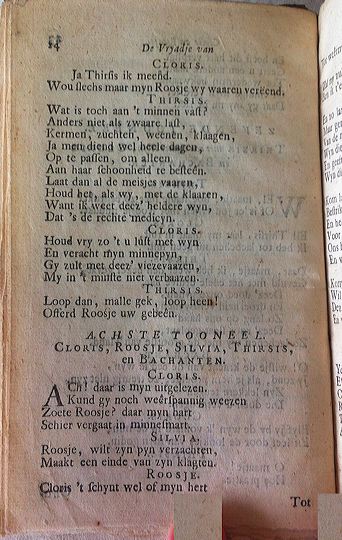 14 De Vryadje van
CLORIS.
Ja Thirsis ik meend.
Wou slechs maar myn Roosje wy waaren vereend.
THIRSIS.
Wat is toch aan 't minnen vast?
Anders niet als zwaare last,
Kermen, zuchten, weenen, klaagen,
Ja men diend wel heele dagen,
Op te passen, om alleen
Aan haar schoonheid te besteên.
Laat dan al de meisjes vaaren,
Houd het, als wy, met de klaaren,
Want ik weet deez' heldere wyn,
Dat 's de rechte medicyn.
CLORIS.
Houd vry zo 't u lust met wyn
En veracht myn minnepyn,
Gy zult met deez' viezevaazen,
My in 't minste niet verbaazen.
THIRSIS.
Loop dan, malle gek, loop heen!
Offerd Roosje uw gebeên.
ACHSTE TOONEEL.
CLORIS, ROOSJE, SILVIA, THIRSIS,
en BACHANTEN.
CLORIS.
Ach! daar is myn uitgelezen.
Kund gy noch weêrspannig weezen
Zoete Roosje? daar myn hart
Schier vergaat in minnesmart.
SILVIA.
Roosje, wilt zyn pyn verzachten,
Maakt een einde van zyn klagten.
ROOSJE.
Cloris 't schynt wel of myn hert
Tot